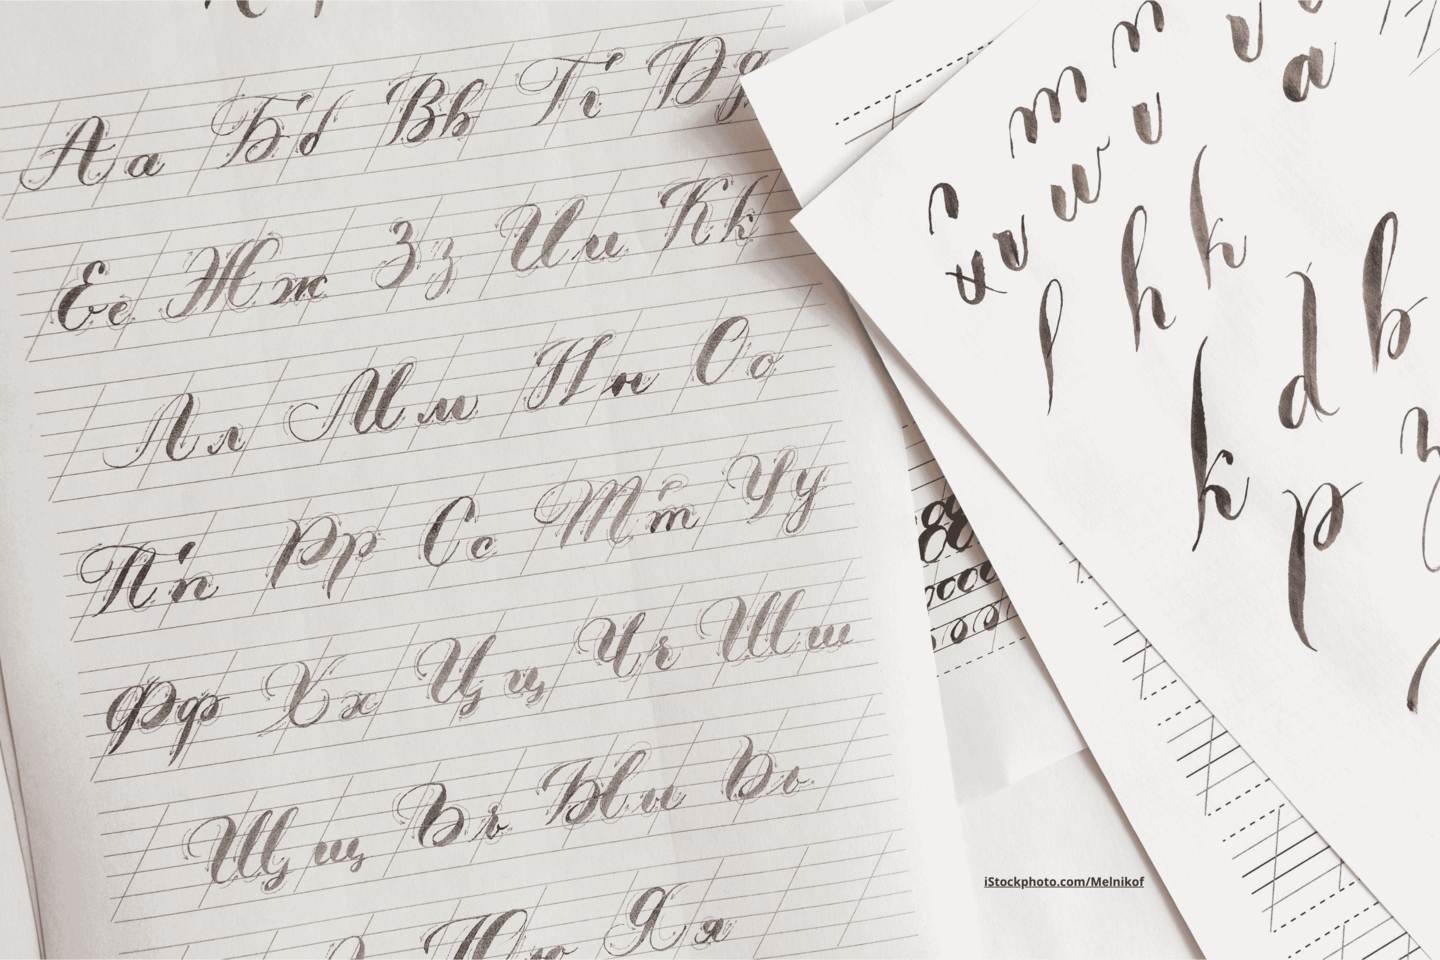 Аа Бб Вв Гг Дд
Ее Жж Зз Ии Кк
Лл Мм Нн Оо
Пп Рр Сс Тт Уу
Фф Хх Цц Чч Шш
Щщ Ъъ Ыы Ьь
Юю Яя
m
m v
a
w v
v
h k
l h d b
k p
iStockphoto.com/Melnikof